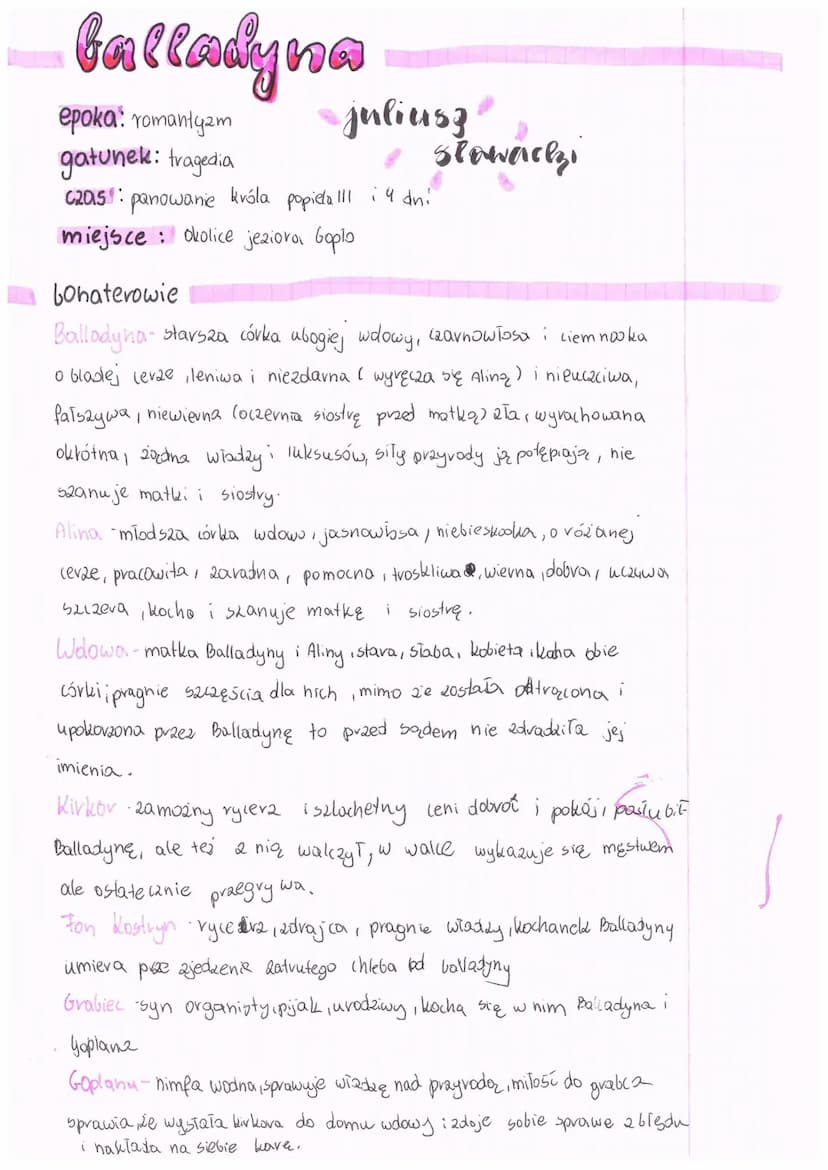 balladyna
epoka: romantyzm
juliusz
słowacki
gatunek: tragedia
czas: panowanie króla popiela III i 4 dni
miejsce: okolice jeziora Goplo
bohaterowie
Balladyna - starsza córka ubogiej wdowy, czarnowłosa i ciemnooka
o bladej cerze, leniwa i niezdarna (wyręcza się Aliną) i nieuczciwa,
fałszywa, niewierna (oczernia siostrę przed matką) zła, wyrachowana
okrótna, żądna władzy i luksusów, siły przyrody ją potępiają, nie
szanuje matki i siostry.
Alina - młodsza córka wdowy, jasnowłosa, niebieskooka, o różanej
cerze, pracowita, zaradna, pomocna, troskliwa, wierna, dobra, uczciwa
szczera, kocha i szanuje matkę i siostrę.
Wdowa - matka Balladyny i Aliny, stara, słaba, kobieta, kocha obie
córki; pragnie szczęścia dla nich, mimo że została odtrącona i
upokorzona przez Balladynę to przed sądem nie zdradziła jej
imienia.
Kirkor - zamożny rycerz i szlachetny ceni dobroć i pokój, poślubił
Balladynę, ale też z nią walczył, w walce wykazuje się męstwem
ale ostatecznie przegrywa.
Fon Kostryn - rycerz, zdrajca, pragnie władzy, kochanek Balladyny
umiera zjedzenie zatrutego chleba od balladyny
Grabiec - syn organisty, pijak, urodziwy, kocha się w nim Balladyna i
Goplana
Goplana - nimfa wodna, sprawuje władzę nad przyrodą, miłość do grabca
sprawia, że wysłała kirkora do domu wdowy i zdaje sobie sprawe z błędu
i nakłada na siebie karę.